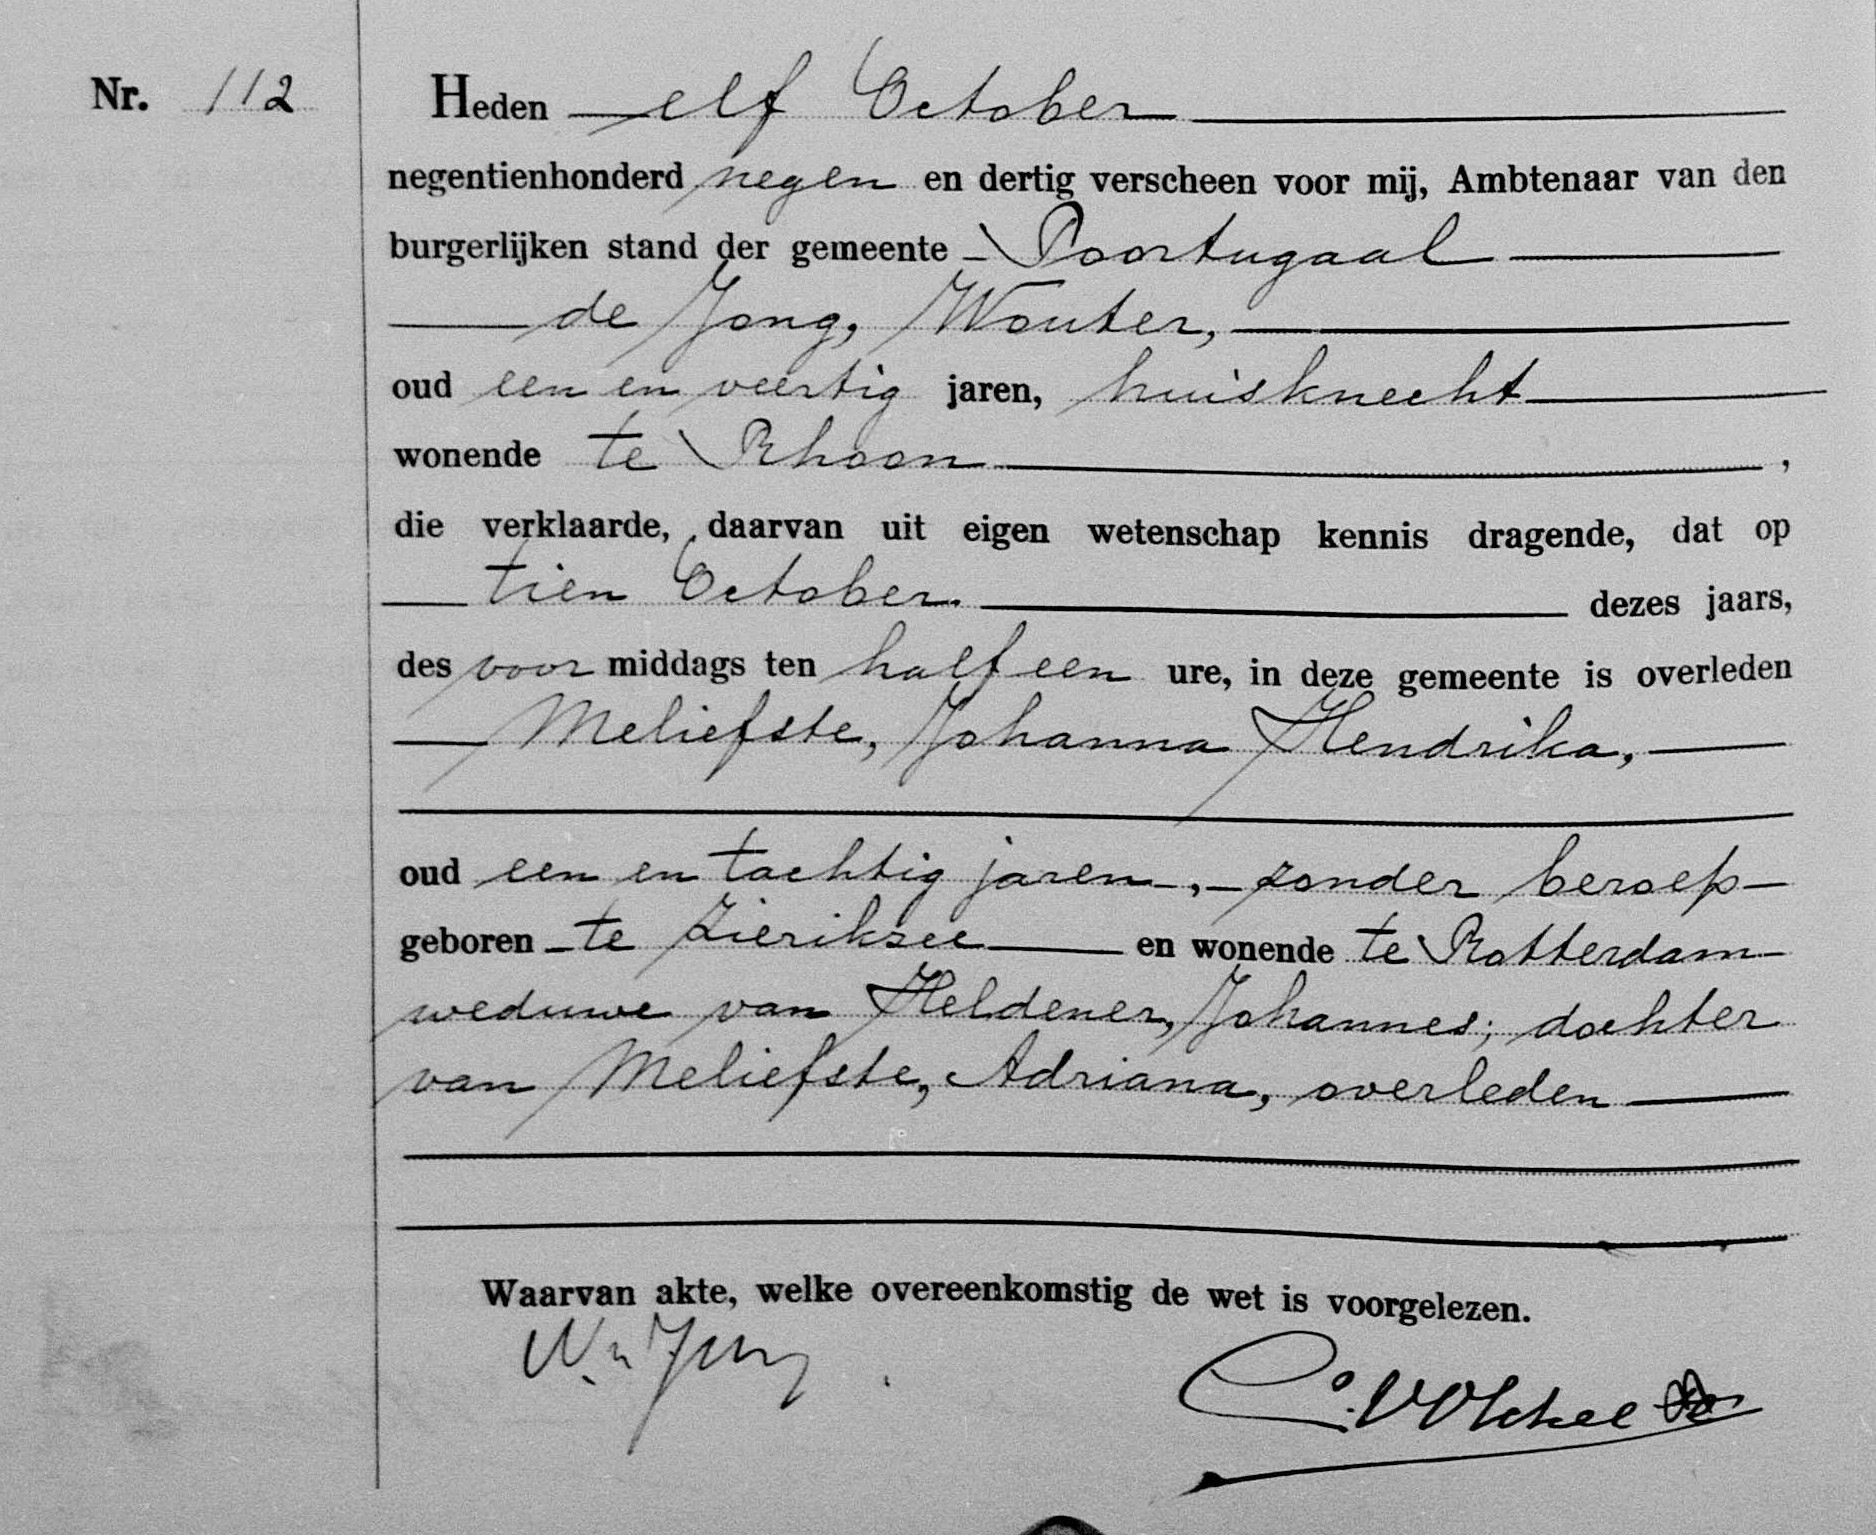 Nr. 112
Heden elf October
negentienhonderd negen en dertig verscheen voor mij, Ambtenaar van den
burgerlijken stand der gemeente Poortugaal
de Jong, Wouter,
oud een en veertig jaren, huisknecht
wonende te Rhoon,
die verklaarde, daarvan uit eigen wetenschap kennis dragende, dat op
tien October. dezes jaars,
des voor middags ten half een ure, in deze gemeente is overleden
Meliefste, Johanna Hendrika,
oud een en tachtig jaren, zonder beroep
geboren te Zierikzee en wonende te Rotterdam
weduwe van Heldener, Johannes; dochter
van Meliefste, Adriana, overleden
Waarvan akte, welke overeenkomstig de wet is voorgelezen.
W. Jong